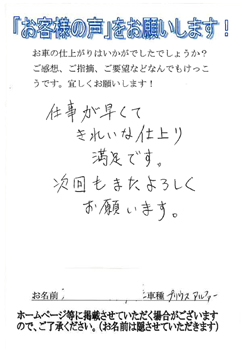 「お客様の声」をお願いします！
お車の仕上がりはいかがでしたでしょうか？
ご感想、ご指摘、ご要望などなんでもけっこ
うです。宜しくお願いします！
仕事が早くて
きれいな仕上り
満足です。
次回もまたよろしく
お願います。
お名前
車種 プリウス アルファー
ホームページ等に掲載させていただく場合がございます
ので、ご了承ください。（お名前は隠させていただきます）